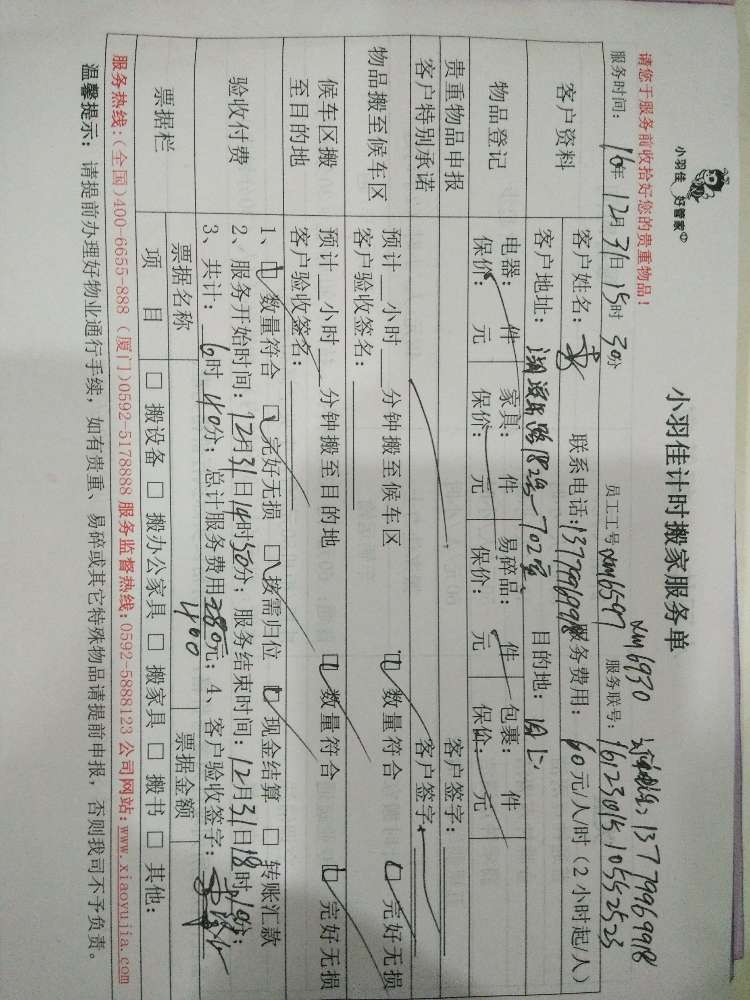 小羽佳 好管家
小羽佳计时搬家服务单
请您于服务前收拾好您的贵重物品!
xm6930 13779969998
服务时间: 16年 12月 31日 15时 30分 员工工号 xm6597 服务联号:
客户资料
客户姓名: 联系电话: 服务费用: 60元/人/时(2小时起/人)
客户地址: 702室 目的地: 同上
物品登记
电器: 件 家具: 件 易碎品: 件 包裹: 件
保价: 元 保价: 元 保价: 元 保价: 元
贵重物品申报 客户签字:
客户特别承诺 客户签字:
物品搬至候车区
预计 小时 分钟搬至候车区 □数量符合 □完好无损
客户验收签名:
候车区搬至目的地
预计 小时 分钟搬至目的地 □数量符合 □完好无损
客户验收签名:
验收付费
1、□数量符合 □完好无损 □按需归位 □现金结算 □转账汇款
2、服务开始时间: 12月31日14时50分; 服务结束时间: 12月31日18时10分;
3、共计: 6时40分; 总计服务费用 元; 4、客户验收签字:
400
票据栏
票据名称 票据金额
项目 □搬设备 □搬办公家具 □搬家具 □搬书 □其他:
服务热线:(全国)400-6655-888 (厦门)0592-5178888 服务监督热线:0592-5888123 公司网站:www.xiaoyujia.com
温馨提示: 请提前办理好物业通行手续, 如有贵重、易碎或其它特殊物品请提前申报, 否则我司不予负责。